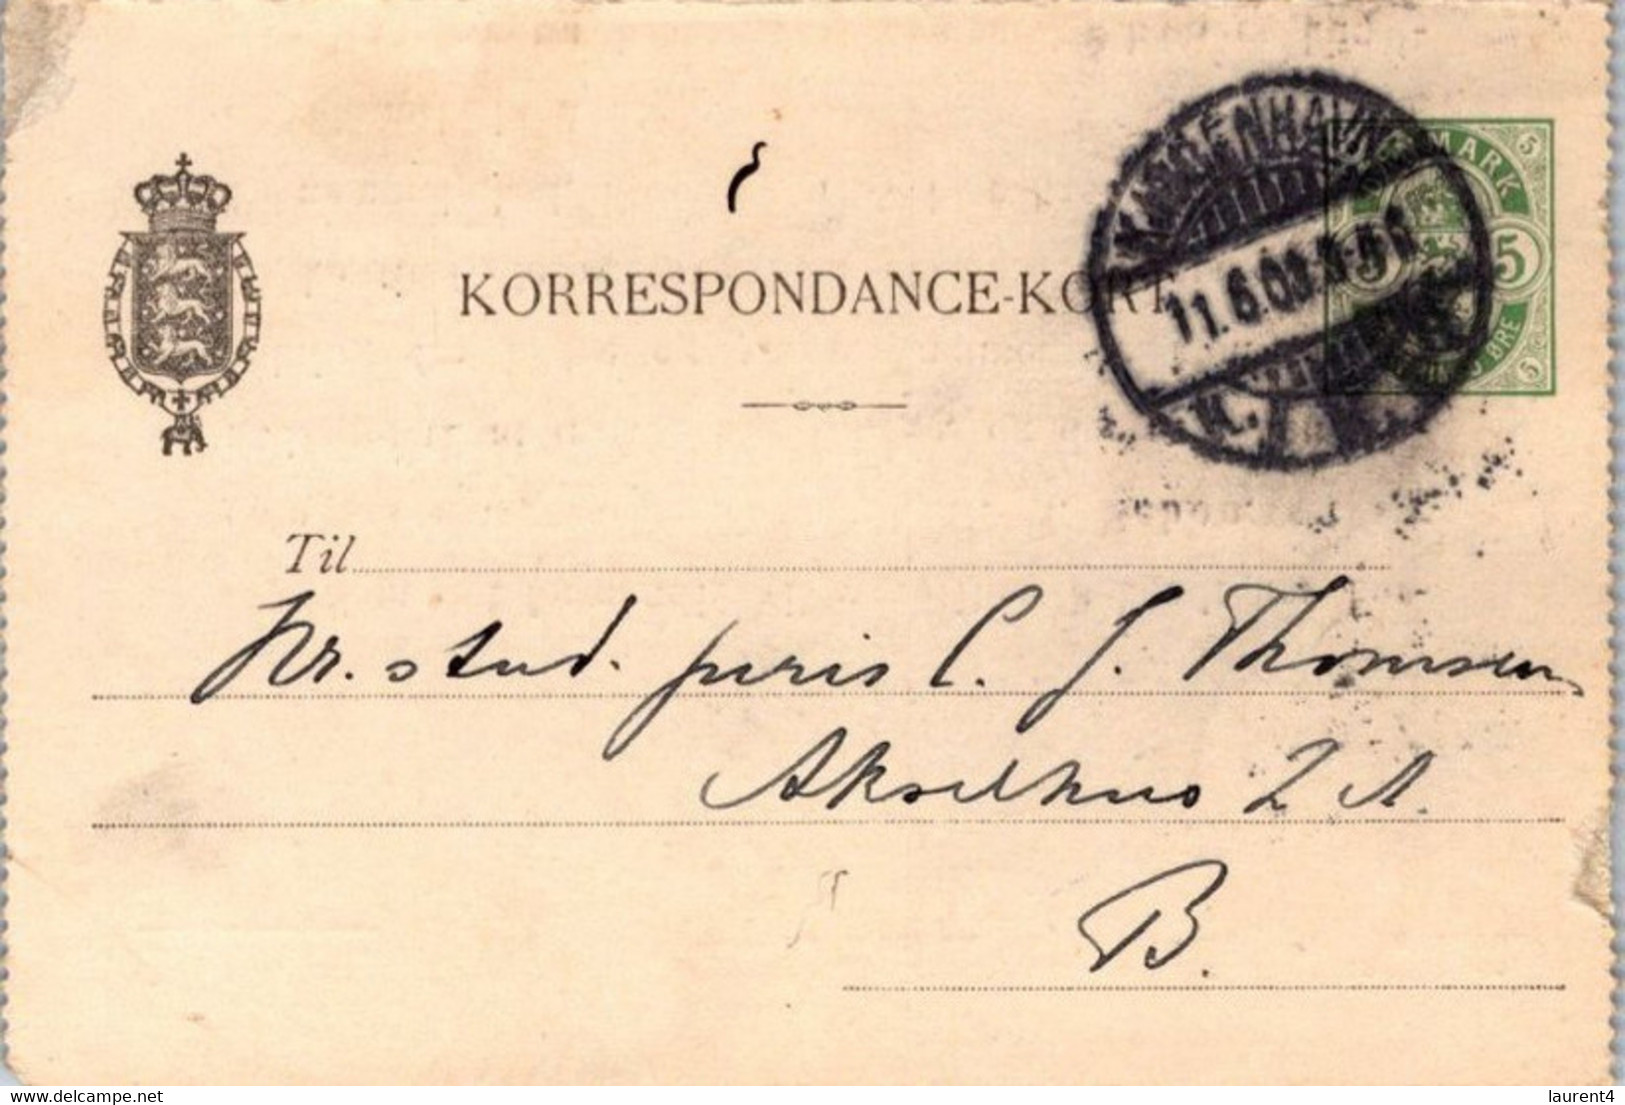 KORRESPONDANCE-KORT
KJØBENHAVN
11.6.03.3-4E
K.
DANMARK
5 5
5 5
ØRE
Til
Hr. stud. juris C. J. Thomsen
Akselhus 2 A.
B.
delcampe.net
laurent4